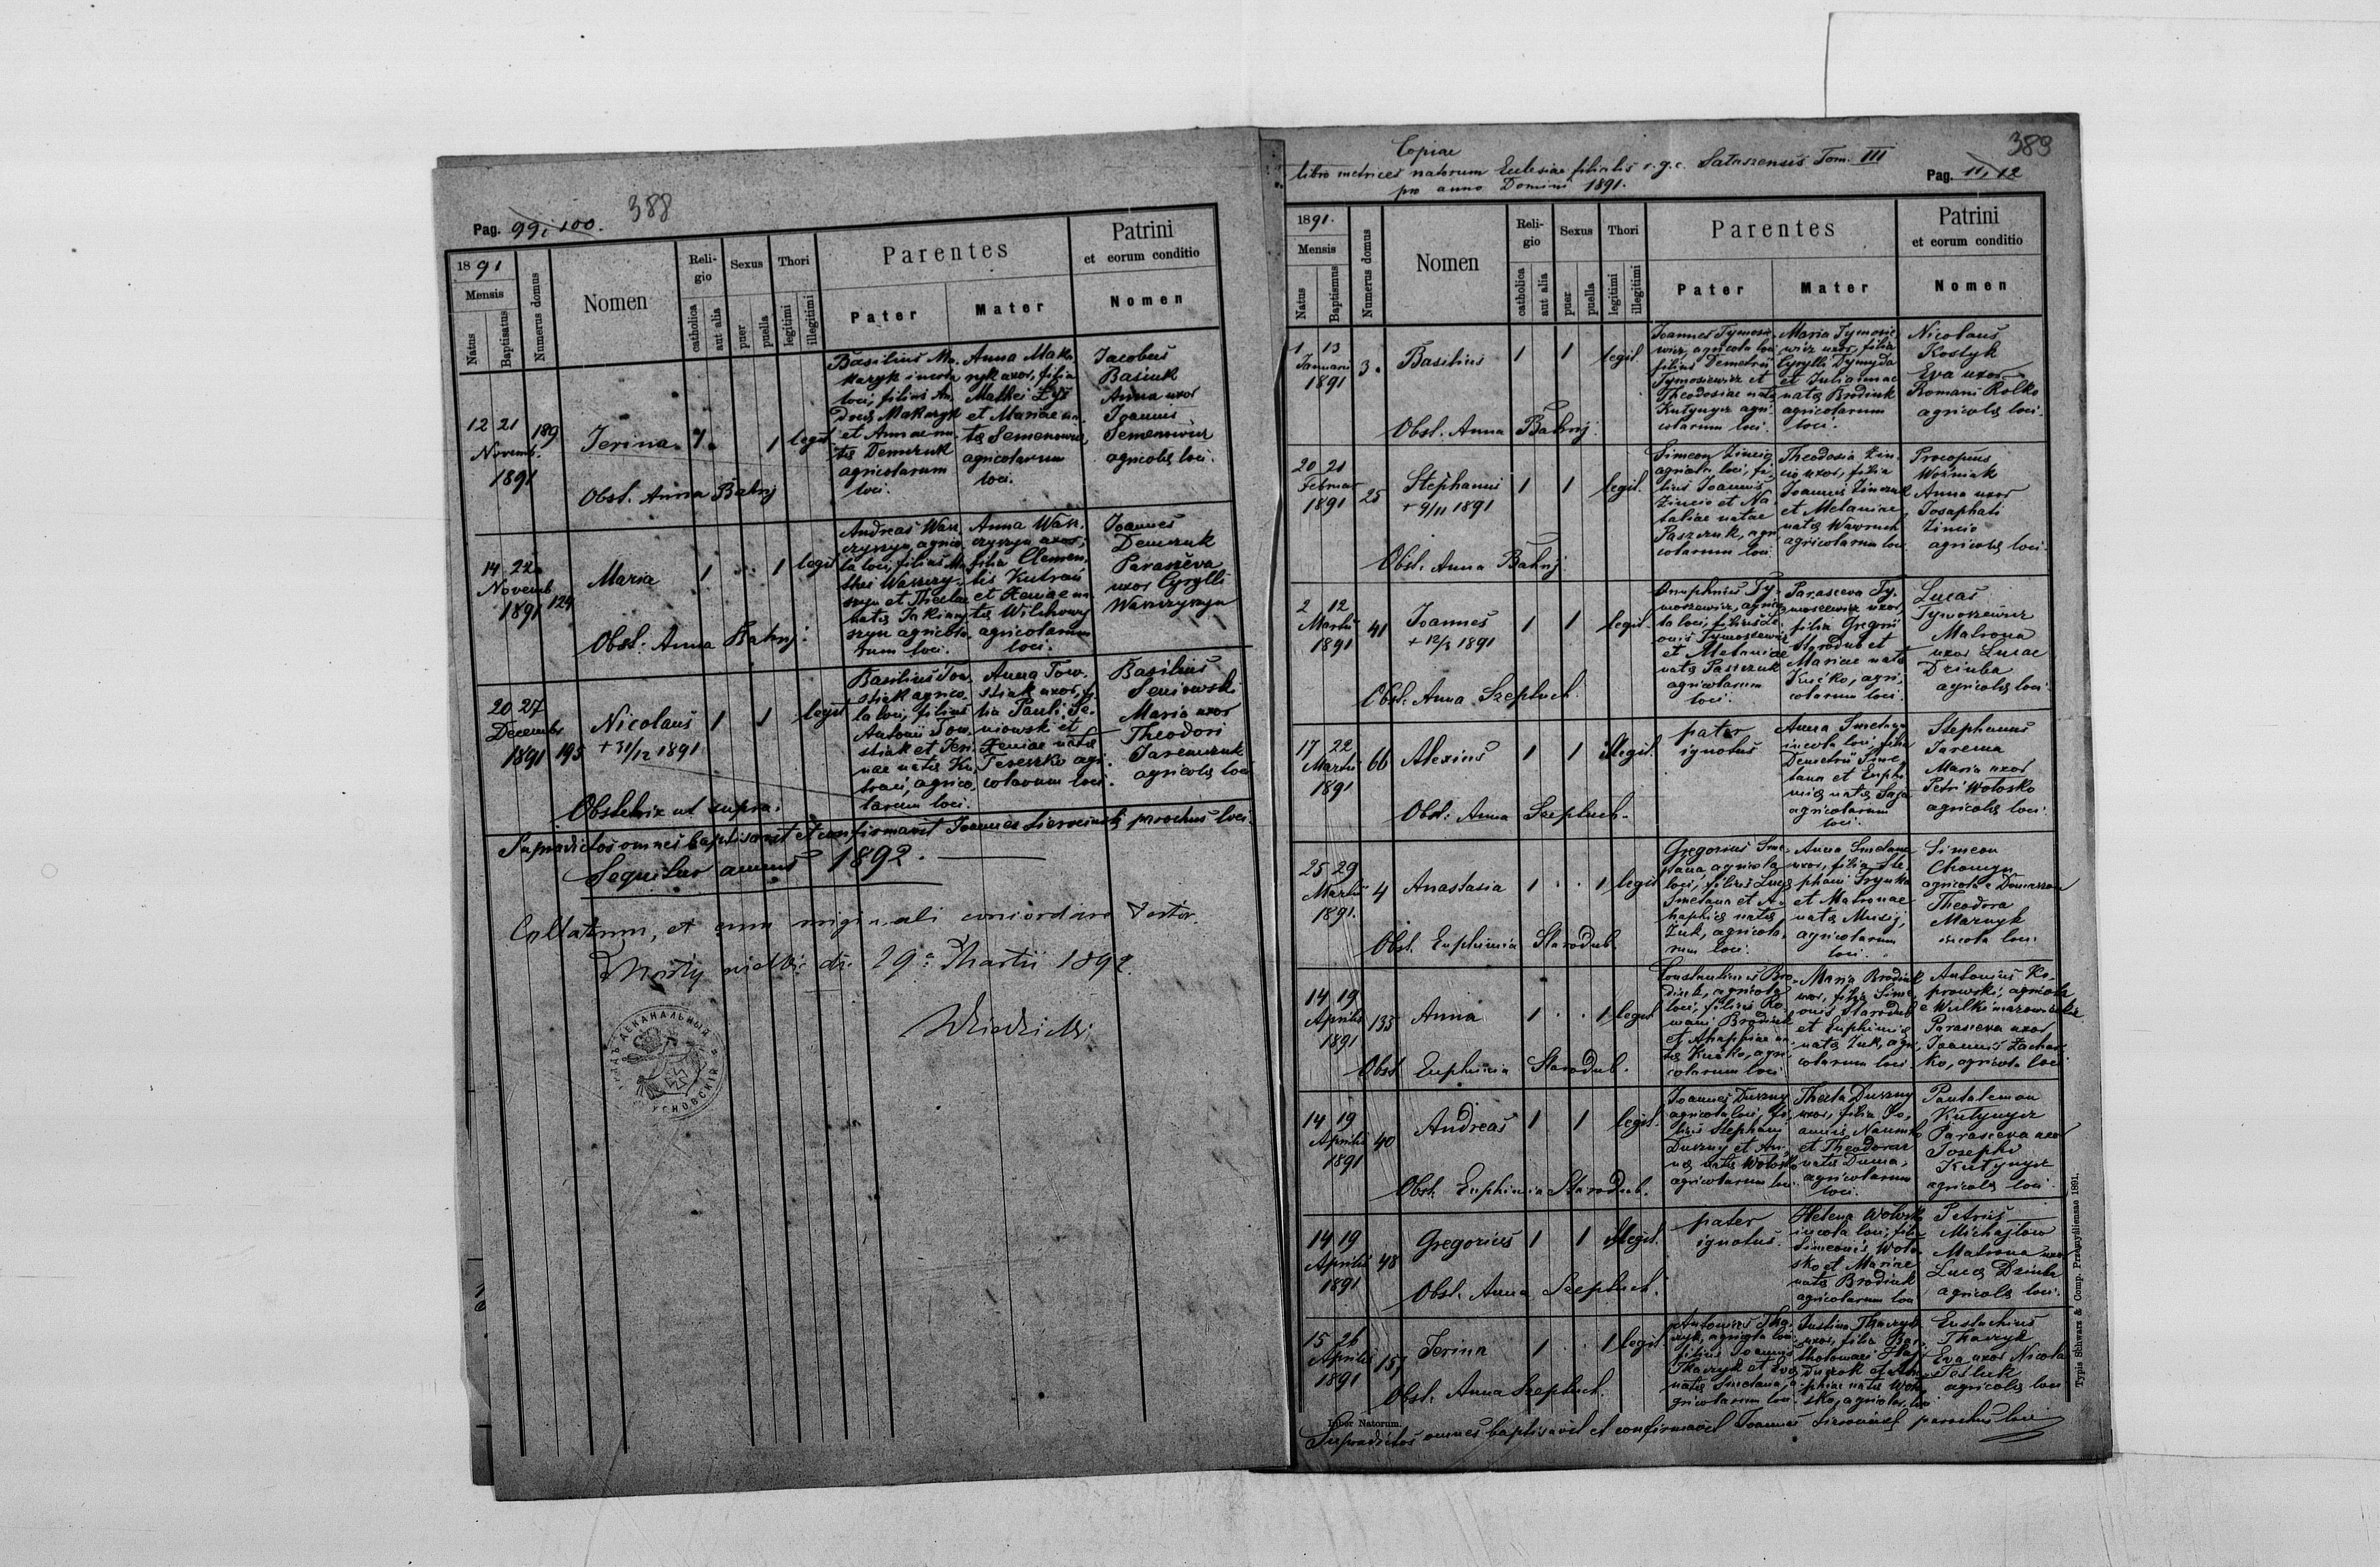 388
Pag. 99, 100.
1891
Mensis
Natus
Baptisatus
Numerus domus
Nomen
Reli-
gio
catholica
aut alia
Sexus
puer
puella
Thori
legitimi
illegitimi
Parentes
Pater
Mater
Patrini
et eorum conditio
Nomen
12 21
Novemb.
1891
189
Jerina
1
1
legit.
Basilius Ma-
karyk incola
loci, filius An-
et Annae na-
tae Demczuk
agricolarum
loci.
Anna Maka-
ryk uxor, filia
Mathei
et Mariae na-
tae Semenowicz
agricolarum
loci.
Jacobus
Basiuk
Anna uxor
Joannis
Semenowicz
agricolae loci.
Obst. Anna Bahrij
14 22
Novemb
1891
124
Maria
1
1
legit
Andreas Wasz-
czyszyn, agrico-
la loci, filius Ma-
thei Waszczy-
szyn et Theclae
natae
szyn agricola-
rum loci.
Anna Wasz-
czyszyn uxor,
filia Clemen-
tis Kutrań
et Xeniae na-
tae
agricolarum
loci.
Joannes
Demczuk
Parasceva
uxor Cyrylli
Waszczyszyn
Obst: Anna Bahrij.
20 27
Decembr
1891
195
Nicolaus
+ 31/12 1891
1
1
legit
Basilius Tow-
stiak agrico-
la loci, filius
Antonii Tow-
stiak et Jeri-
nae natae Ku-
trań, agrico-
larum loci.
Anna Tow-
stiak uxor, fi-
lia Pauli Se-
niowski et
Xeniae natae
Tereszko agri-
colarum loci.
Basilius
Seniowski
Maria uxor
Theodori
Jaremczuk
agricolae loci
Obstetrix ut supra.
Supradictos omnes baptisavit et confirmavit Joannes Sierocinski parochus loci.
Sequitur annus 1892.
Collatum, et cum originali concordare testor.
Mosty wielkie die 29a Martii 1892.
389
Copiae
libro metrices natorum Eclesiae filialis r.g.c. Sataszensis Tom. III
pro anno Domini 1891.
Pag. 11, 12
1891.
Mensis
Natus
Baptismus
Numerus domus
Nomen
Reli-
gio
catholica
aut alia
Sexus
puer
puella
Thori
legitimi
illegitimi
Parentes
Pater
Mater
Patrini
et eorum conditio
Nomen
1 13
Januarii
1891
3.
Basilius
1
1
legit.
Joannes Tymosie-
wicz, agricola loci
filius Demetrii
Tymosiewicz et
Theodosiae natae
Kutynycz agri-
colarum loci.
Maria Tymosie-
wicz uxor, filia
Cyrylli Dymyda
et Juliannae
natae Brodiuk
agricolarum
loci.
Nicolaus
Kostyk
Eva uxor
Romani Rolko
agricolae loci.
Obst. Anna Bahrij.
20 21
Februar
1891
25
Stephanus
+ 9/11 1891
1
1
legit.
Simeon Zincio
agricola loci, fi-
lius Joannis
Zincio et Na-
taliae natae
Paszczuk, agri-
colarum loci.
Theodosia Zin-
cio uxor, filia
Joannis
et Melaniae
natae Wawruch
agricolarum loci
Procopius
Woźniak
Anna uxor
Josaphati
Zincio
agricolae loci.
Obst. Anna Bahrij.
2 12
Martii
1891
41
Joannes
+ 12/3 1891
1
1
legit.
Onuphrius Ty-
moszewicz, agrico-
la loci, filius Le-
onis Tymoszewicz
et Melaniae
natae Paszczuk
agricolarum
loci.
Parasceva Ty-
moszewicz uxor,
filia Gregorii
Starodub et
Mariae natae
Kućko, agri-
colarum loci.
Lucas
Tymoszewicz
Matrona
uxor Lucae
Dziuba
agricolae loci.
Obst. Anna Szepluch.
17 22
Martii
1891
66
Alexius
1
1
illegit.
pater
ignotus
Anna Smetana
incola loci, filia
Demetrii Sme-
tana et Euphi-
miae natae
agricolarum
loci.
Stephanus
Jarema
Maria uxor
Petri Wołosko
agricolae loci.
Obst: Anna Szepluch.
25 29
Martii
1891.
4
Anastasia
1
1
legit
Gregorius Sme-
tana, agricola
loci, filius Lucae
Smetana et A-
haphiae natae
Żuk, agricola-
rum loci.
Anna Smetana
uxor, filia Ste-
phani Hrynko
et Matronae
natae
agricolarum
loci.
Simeon
Chomyn
agricola e Domaszow
Theodora
Mazuryk
incola loci
Obst. Euphimia Starodub.
14 19
Aprilis
1891
135
Anna
1
1
legit
Constantinus Bro-
diuk, agricola
loci, filius Ro-
mani Brodiuk
et Ahaphiae na-
tae Kućko, agri-
colarum loci
Maria Brodiuk
uxor, filia Sime-
onis Starodub
et Euphimiae
natae Żuk, agri-
colarum loci.
Antonius Ko-
prowski, agricola
e Wulki mazowieckie
Parasceva uxor
Joannis Zachar-
ko, agricola loci
Obst. Euphimia Starodub.
14 19
Aprilis
1891
40
Andreas
1
1
legit.
Joannes Duszny
agricola loci, fi-
lius Stephani
Duszny et An-
nae natae Wołosko
agricolarum loci.
Thecla Duszny
uxor, filia Jo-
annis Naumko
et Theodorae
natae Duma,
agricolarum
loci.
Pantalemon
Kutynycz
Parasceva uxor
Josephi
Kutynycz
agricolae loci
Obst. Euphimia Starodub.
14 19
Aprilis
1891
48
Gregorius
1
1
illegit.
pater
ignotus.
Helena Wołosko
incola loci, filia
Simeonis Woło-
sko et Mariae
natae Brodiuk
agricolarum loci
Petrus
Michajlow
Matrona uxor
Lucae Dziuba
agricolae loci.
Obst. Anna Szepluch.
15 26
Aprilis
1891
157
Jerina
1
1
legit.
Antonius Tka-
czyk, agricola loci,
filius Joannis
Tkaczyk et Evae
natae Smetana, a-
gricolarum loci
Justina Tkaczyk
uxor, filia Bar-
tholomaei
natae Woło-
sko, agricolar. loci
Eustachius
Tkaczyk
Eva uxor Nicolai
Tesluk
agricolae loci
Obst. Anna Szepluch.
Liber Natorum.
Supradictos omnes baptisavit et confirmavit Joannes Sierocinski parochus loci
Typis Schwarz & Comp. Przemysliensae 1891.